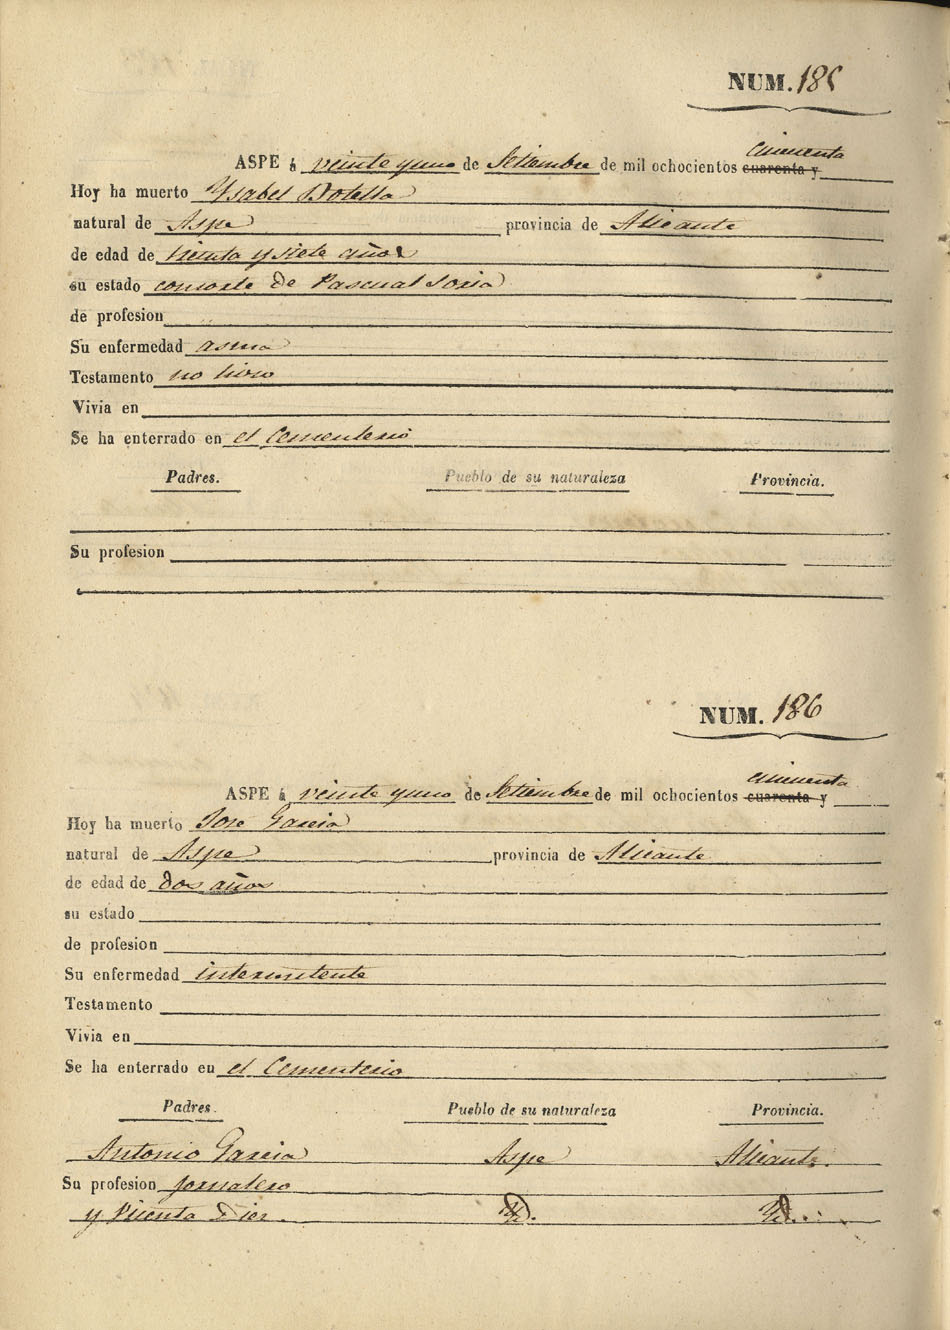 NUM. 185
cincuenta
ASPE á veinte y uno de Setiembre de mil ochocientos cuarenta y
Hoy ha muerto Ysabel Botella
natural de Aspe provincia de Alicante
de edad de treinta y siete años
su estado consorte de Pascual Soria
de profesion
Su enfermedad asma
Testamento no hizo
Vivia en
Se ha enterrado en el Cementerio
Padres. Pueblo de su naturaleza Provincia.
Su profesion
NUM. 186
cincuenta
ASPE á veinte y uno de Setiembre de mil ochocientos cuarenta y
Hoy ha muerto José Garcia
natural de Aspe provincia de Alicante
de edad de dos años
su estado
de profesion
Su enfermedad intermitente
Testamento
Vivia en
Se ha enterrado en el Cementerio
Padres. Pueblo de su naturaleza Provincia.
Antonio Garcia Aspe Alicante.
Su profesion jornalero
y Vicenta Dies. Yd. Yd.